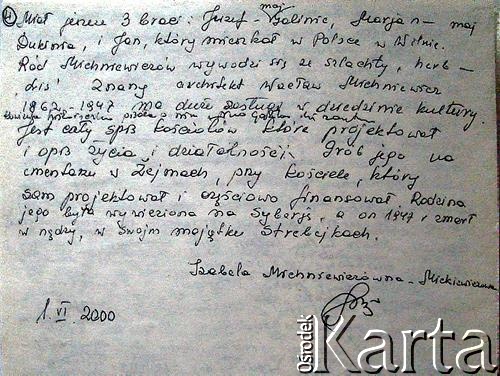 4 Miał jeszcze 3 braci: Józef - maj Galinie, Marjan - maj
Dukinia, i Jan, który mieszkał w Polsce w Wilnie.
Ród Michniewiczów wywodzi się ze szlachty, herb -
Znany architekt Wacław Michniewicz
1862 - 1947 ma duże zasługi w dziedzinie kultury.
Jest cały spis kościołów które projektował
i opis życia i działalności. Grób jego na
cmentarzu w Żejmach, przy kościele, który
sam projektował i częściowo finansował. Rodzina
jego była wywieziona na Syberję, a on 1947 r zmarł
w nędzy, w swoim majątku Strebejkach.
Izabela Michniewiczówna - Mickiewiczowa
1. VI. 2000
Ośrodek
Karta